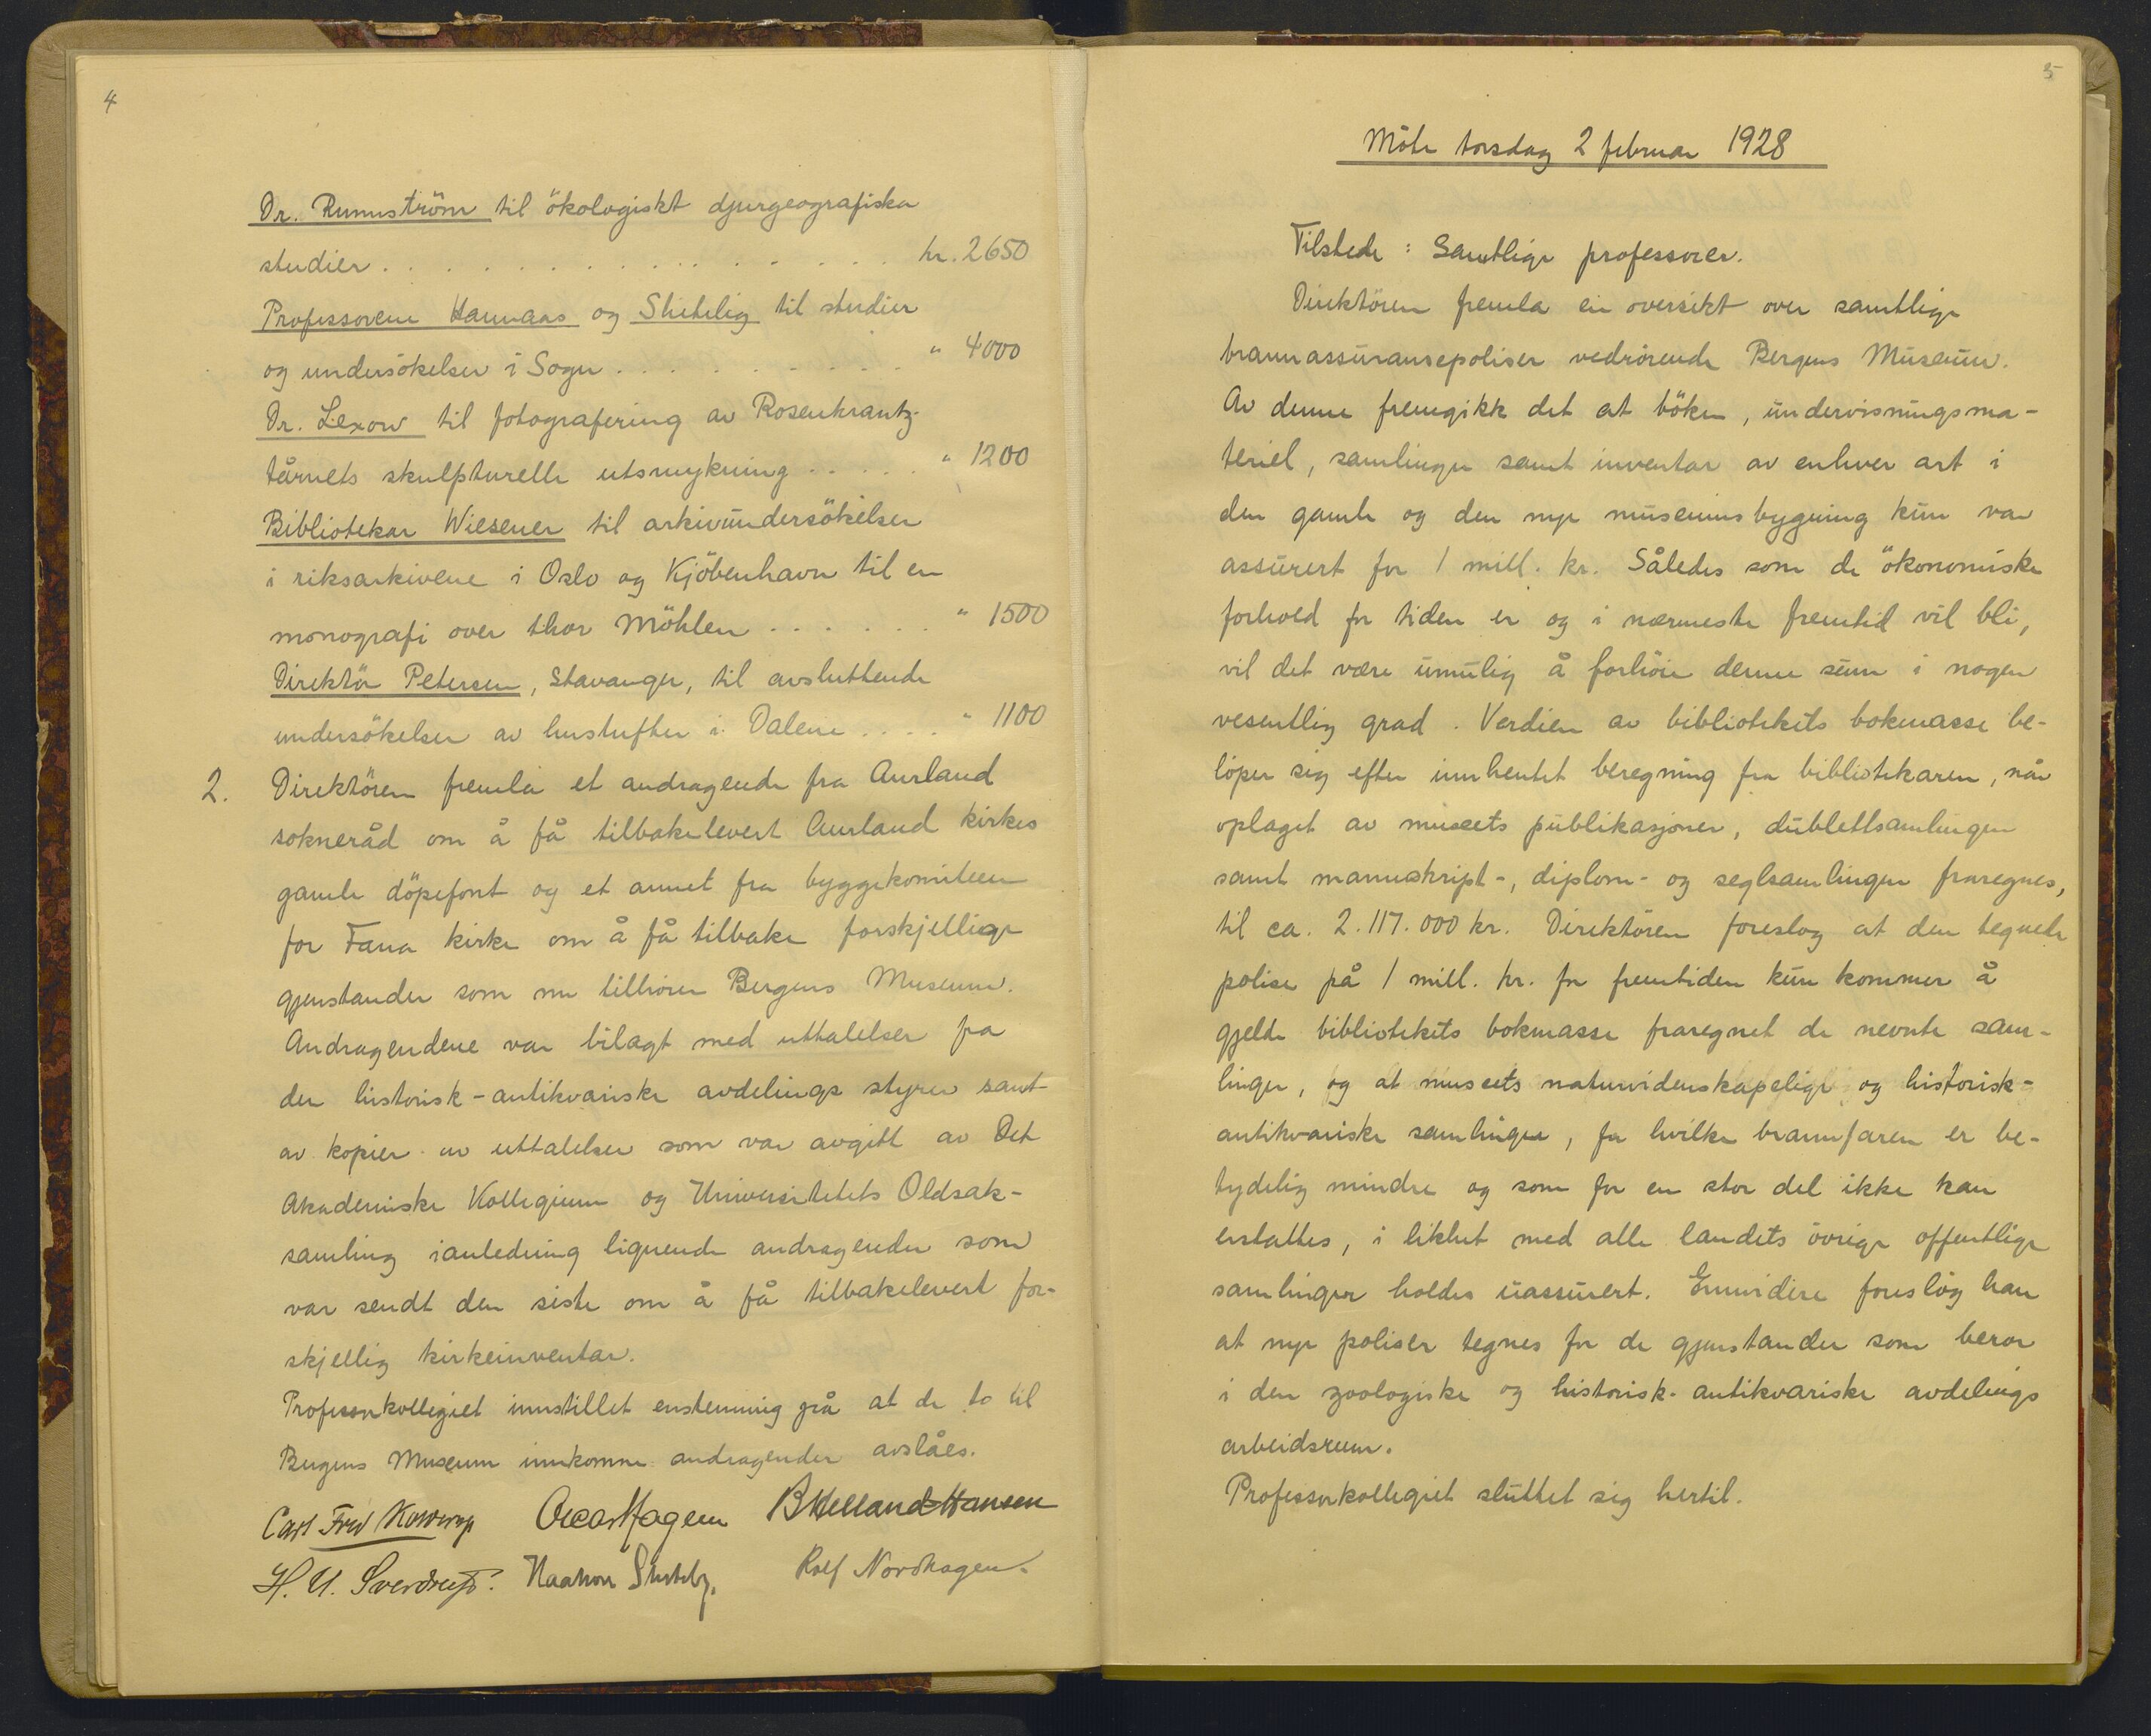 4
Dr. Runnström til ökologiskt djurgeografiska
studier . . . . . . . . . . . . . . . . kr. 2650
Professorene Hannaas og Shetelig til studier
og undersökelser i Sogn . . . . . . . . . . " 4000
Dr. Lexow til fotografering av Rosenkrantz-
tårnets skulpturelle utsmykning . . . . . " 1200
Bibliotekar Wiesener til arkivundersökelser
i riksarkivene i Oslo og Kjöbenhavn til en
monografi over thor Möhlen . . . . . . " 1500
Direktör Petersen, Stavanger, til avsluttende
undersökelser av hustufter i Dalene . . . . " 1100
2. Direktören fremla et andragende fra Aurland
sokneråd om å få tilbakelevert Aurland kirkes
gamle döpefont og et annet fra byggekomiteen
for Fana kirke om å få tilbake forskjellige
gjenstander som nu tilhörer Bergens Museum.
Andragendene var bilagt med uttalelser fra
den historisk-antikvariske avdelings styrer samt
av kopier av uttalelser som var avgitt av Det
Akademiske Kollegium og Universitetets Oldsak-
samling i anledning lignende andragender som
var sendt den siste om å få tilbakelevert for-
skjellig kirkeinventar.
Professorkollegiet innstillet enstemmig på at de to til
Bergens Museum innkomne andragender avslåes.
Carl Fred Kolderup Oscar Hagem B Helland-Hansen
H. U. Sverdrup. Haakon Shetelig. Rolf Nordhagen.
5
Möte torsdag 2 februar 1928
Tilstede : Samtlige professorer.
Direktören fremla en oversikt over samtlige
brannassuransepoliser vedrörende Bergens Museum.
Av denne fremgikk det at böker, undervisningsma-
teriel, samlinger samt inventar av enhver art i
den gamle og den nye museumsbygning kun var
assurert for 1 mill. kr. Således som de ökonomiske
forhold for tiden er og i nærmeste fremtid vil bli,
vil det være umulig å forhöie denne sum i nogen
vesentlig grad. Verdien av bibliotekets bokmasse be-
löper sig efter innhentet beregning fra bibliotekaren, når
oplaget av museets publikasjoner, dublettsamlingen
samt manuskript-, diplom- og seglsamlingen fraregnes,
til ca. 2.117.000 kr. Direktören foreslog at den tegnede
polise på 1 mill. kr. for fremtiden kun kommer å
gjelde bibliotekets bokmasse fraregnet de nevnte sam-
linger, og at museets naturvidenskapelige og historisk-
antikvariske samlinger, for hvilke brannfaren er be-
tydelig mindre og som for en stor del ikke kan
erstattes, i likhet med alle landets övrige offentlige
samlinger holdes uassurert. Ennvidere foreslog han
at nye poliser tegnes for de gjenstander som beror
i den zoologiske og historisk-antikvariske avdelings
arbeidsrum.
Professorkollegiet sluttet sig hertil.